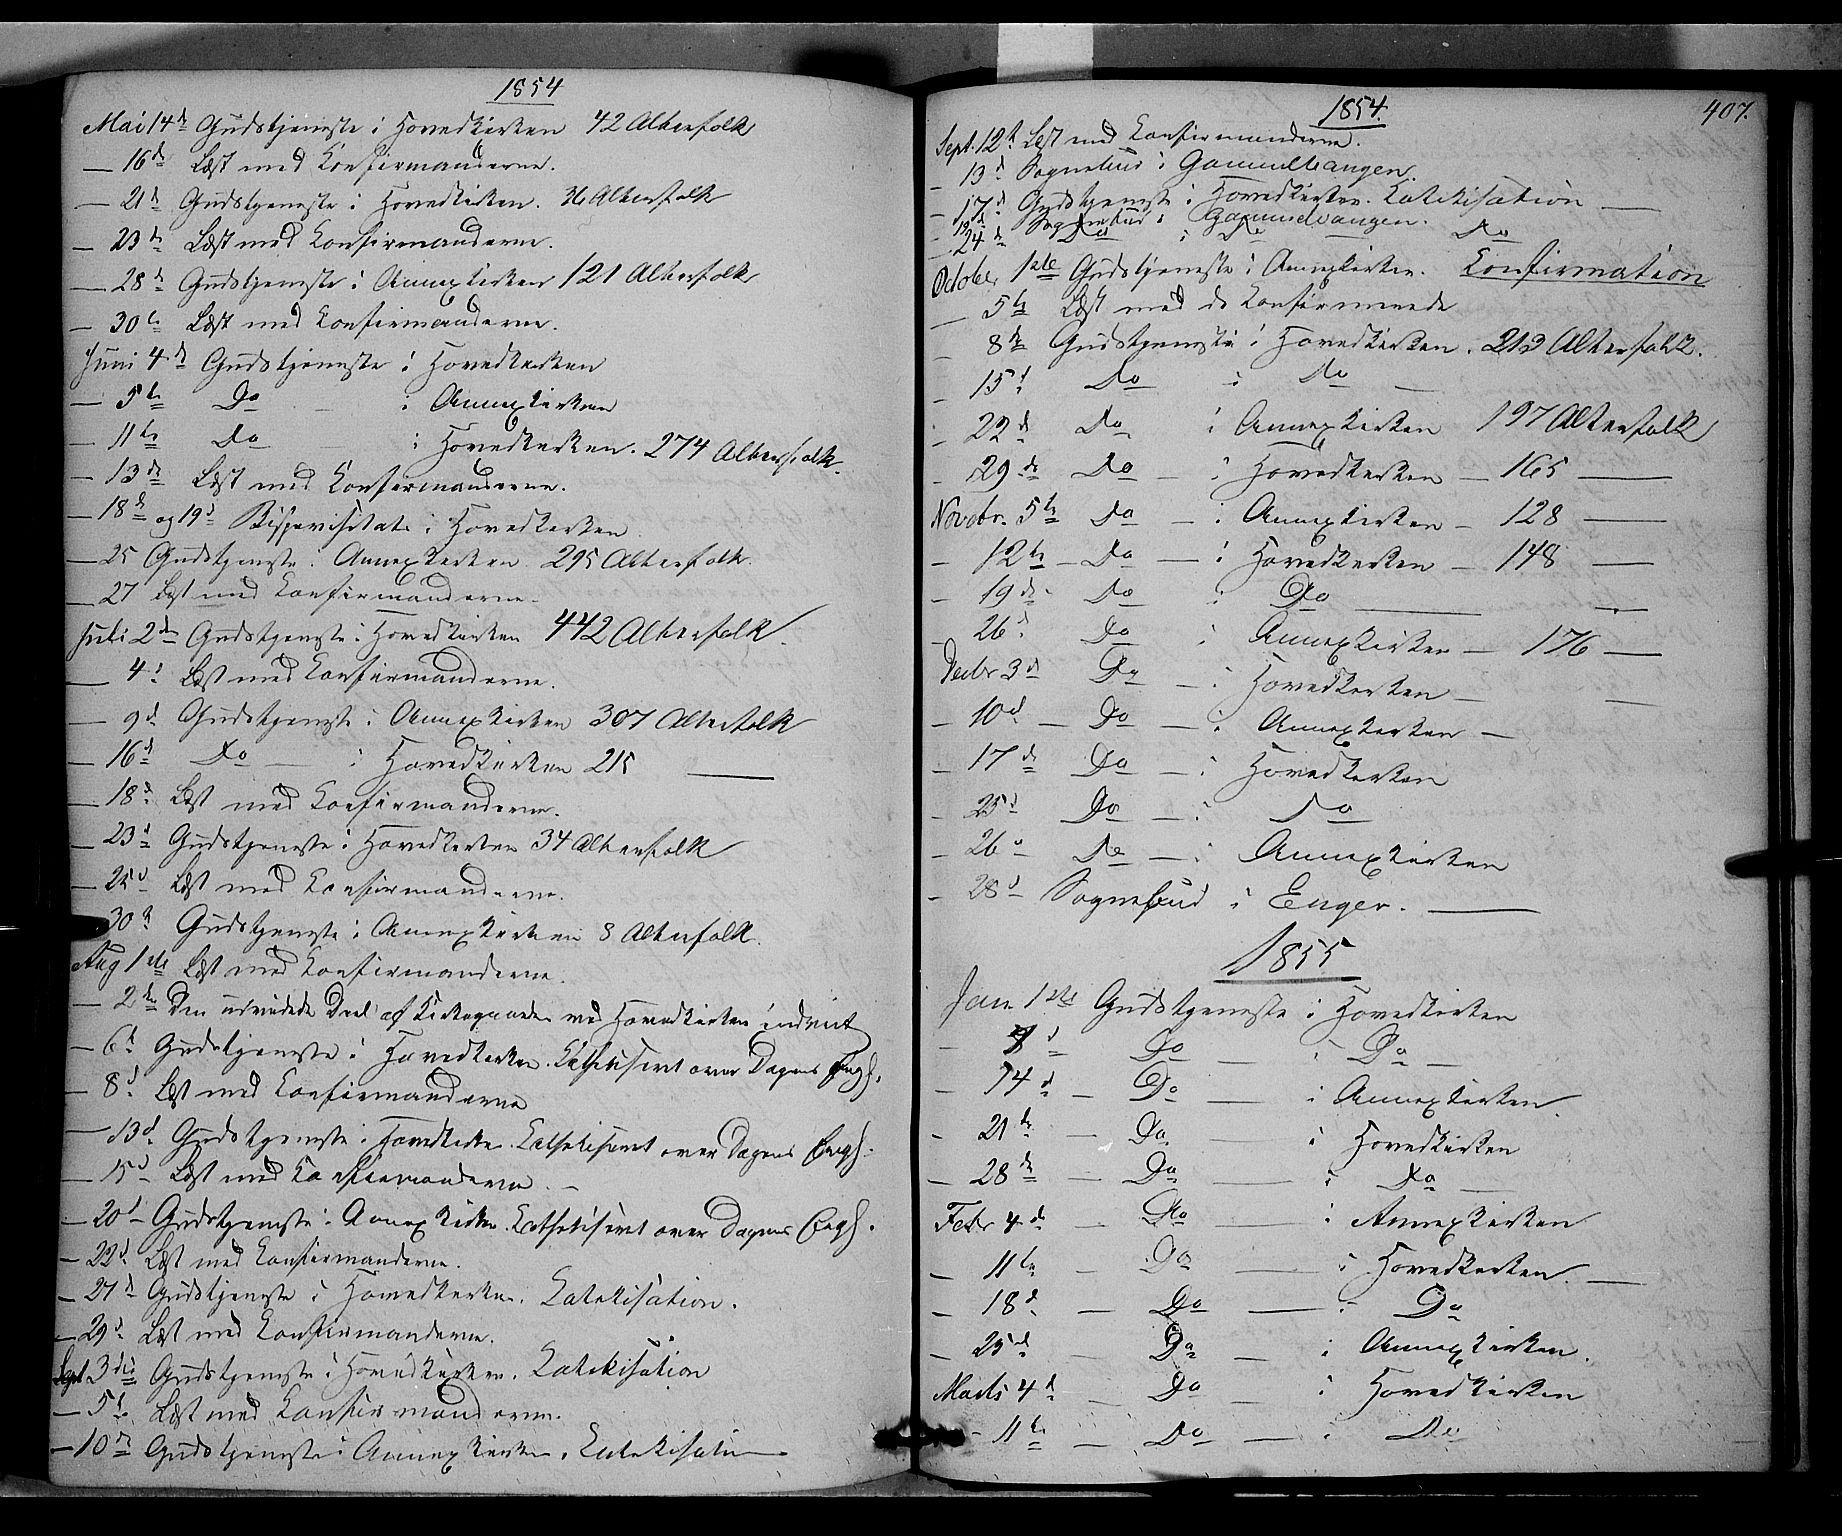 1854
Mai 14de Gudstjeneste i Hovedkirken 42 Alterfolk
— 16de Læst med Confirmanderne.
— 21de Gudstjeneste i Hovedkirken. 36 Alterfolk
— 23de Læst med Confirmanderne.
— 28de Gudstjeneste i Annexkirken 121 Alterfolk
— 30te Læst med Confirmanderne.
Juni 4de Gudstjeneste i Hovedkirken
— 5te Do i Annexkirken
— 11te Do i Hovedkirken. 274 Alterfolk.
— 13de Læst med Confirmanderne.
— 18de og 19d Bispevisitats i Hovedkirken
— 25 Gudstjeneste i Annexkirken 295 Alterfolk.
— 27 Læst med Confirmanderne.
Juli 2den Gudstjeneste i Hovedkirken 442 Alterfolk.
— 4d Læst med Confirmanderne.
— 9d Gudstjeneste i Annexkirken 307 Alterfolk
— 16d Do — i Hovedkirken 215 —
— 18d Læst med Confirmanderne.
— 23d Gudstjeneste i Hovedkirken 34 Alterfolk
— 25d Læst med Confirmanderne.
— 30te Gudstjeneste i Annexkirken 8 Alterfolk.
Aug 1ste Læst med Confirmanderne.
— 2den Den udvidede Deel af Kirkegaarden ved Hovedkirken indviet
— 6te Gudstjeneste i Hovedkirken. Cathekiseret over Dagens Evgl.
— 8d Læst med Confirmanderne
— 13d Gudstjeneste i Hovedkirken. Cathekiseret over Dagens Evgl.
— 15d Læst med Confirmanderne. —
— 20d Gudstjeneste i Annexkirken. Cathekiseret over Dagens Evgl.
— 22d Læst med Confirmanderne.
— 27d Gudstjeneste i Hovedkirken. Catekisation.
— 29d Læst med Confirmanderne.
Sept 3die Gudstjeneste i Hovedkirken. Catekisation
— 5te Læst med Confirmanderne.
— 10de Gudstjeneste i Annexkirken. Catekisation
1854. 407.
Sept. 12te Læst med Confirmanderne.
— 13d Sognebud i Gammelbangen.
— 17d Gudstjeneste i Hovedkirken. Catekisation —
— Sognebud i
— 24de Do i Do — Do
October 1ste Gudstjeneste i Annexkirken. Confirmation
— 5te Læst med de Confirmerede
— 8de Gudstjeneste i Hovedkirken. 213 Alterfolk.
— 15d Do i Do —
— 22d Do i Annexkirken 197 Alterfolk
— 29de Do — i Hovedkirken — 165 —
Novbr. 5te Do — i Annexkirken — 128 —
— 12te — Do — i Hovedkirken — 148 —
— 19de Do i Do —
— 26d Do i Annexkirken — 176 —
Decbr 3d Do — i Hovedkirken —
— 10d — Do — i Annexkirken —
— 17de Do — i Hovedkirken
— 25d Do — i Do
— 26d Do — i Annexkirken
— 28d Sognebud i Enger. —
1855
Jan. 1ste Gudstjeneste i Hovedkirken
— 7d Do — i Do —
— 14d — Do — i Annexkirken.
— 21de — Do — i Hovedkirken
— 28de — Do — i Do —
Febr 4de — Do — i Annexkirken
— 11te — Do — i Hovedkirken. —
— 18d — Do — i Do
— 25d — Do — i Annexkirken.
Marts 4d — Do — i Hovedkirken
— 11te — Do — i Do